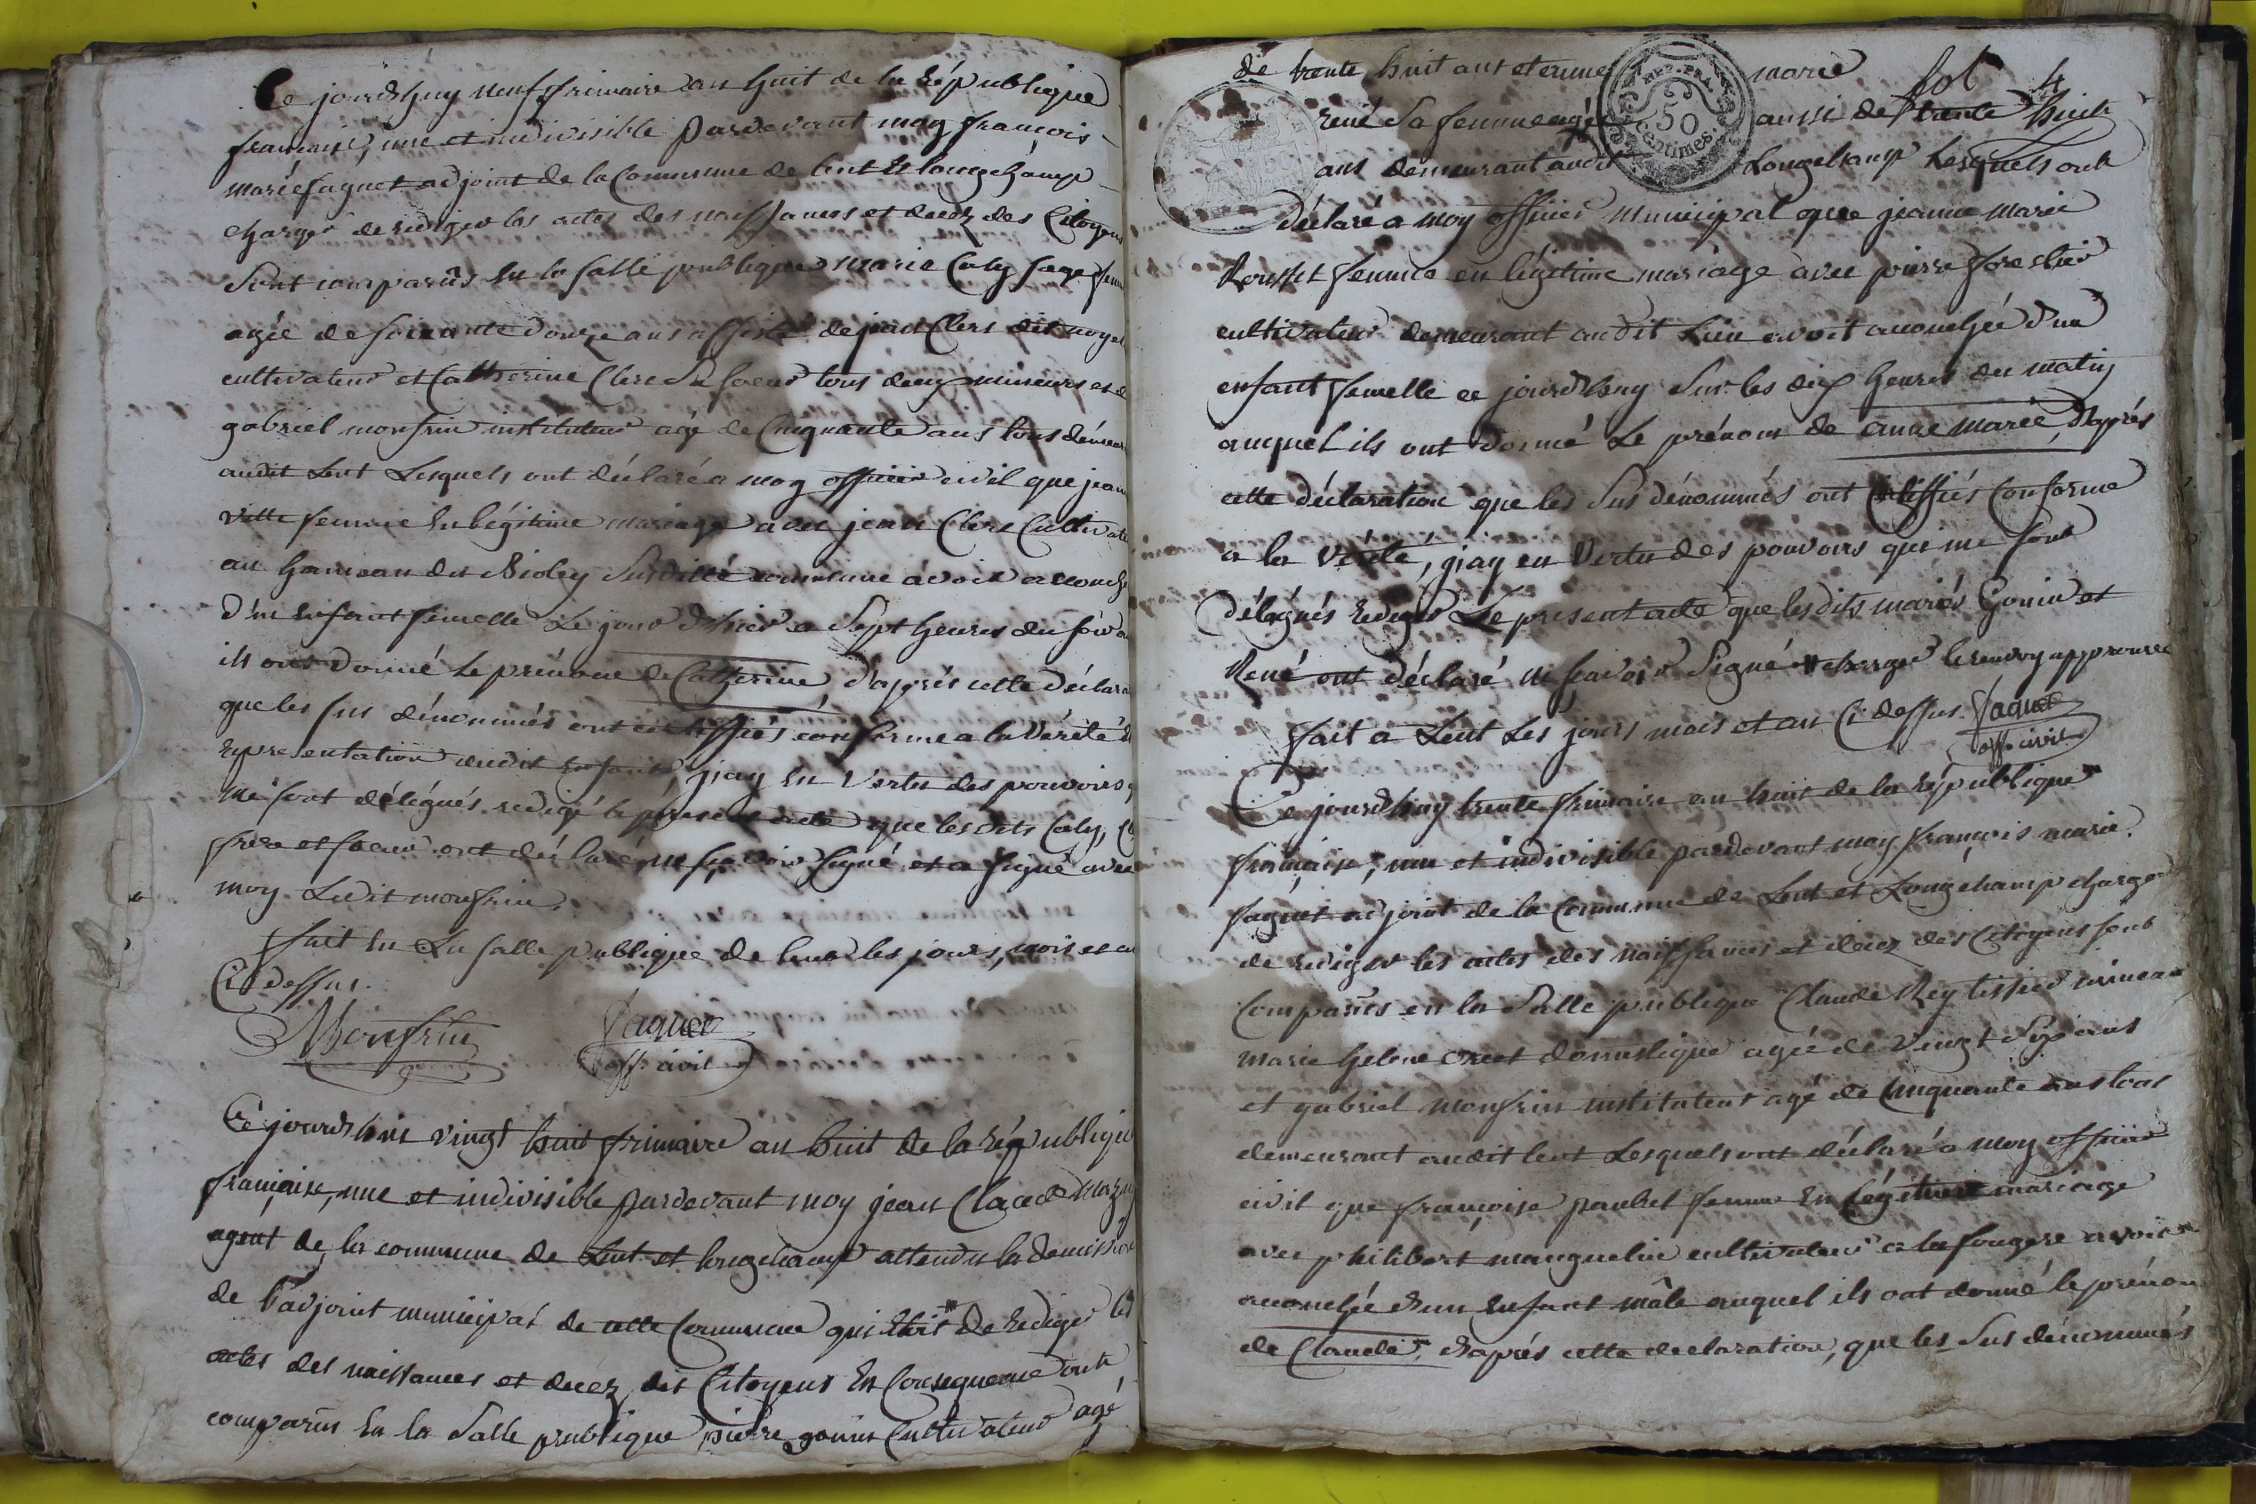 Ce jourdhuy neuf frimaire an huit de la République
française, une et indivisible pardevant moy françois
marie faguet adjoint de la Commune de lent et longchamp
chargé de rediger les actes des naissances et decez des Citoyens
Sont comparûs en la salle publique marie Caly sage femme
agée de soixante douze ans assisté de jean Clerc dit noyel
cultivateur et Catherine Clerc sa soeur tous deux mineurs et de
gabriel monfrin instituteur agé de Cinquante ans tous demeur
audit Lent Lesquels ont déclaré a moy officier civil que jean
vitte femme En légitime mariage avec jean Clerc Cultivat
au hameau du Bioley susditte commune avoit accouch
d'un enfant femelle Le jour d'hier a sept heures du soir
ils ont donné le prénom de Catherine, d'après cette déclara
que les sus dénommés ont certiffiés conforme a la vérité
représentation dudit enfant, j'ay en vertu des pouvoirs q
me sont délégués redigé le présent acte que lesdits Caly, Cl
frere et soeur ont déclaré ne sçavoir signé et a signé avec
moy Ledit monfrin,
fait En La salle publique de lent les jours, mois et an
Ci dessus.
Monfrin faguet
off. civil
Ce jourdhui vingt huit frimaire an huit de la République
française, une et indivisible pardevant moy jean Claude
agent de la commune de Lent et longchamp attendu la demission
de l'adjoint municipal de cette Commune qui étoit de rediger les
actes des naissances et decez des Citoyens En Consequence ont
comparûs En la Salle publique pierre gonin Cultivateur agé
fol 4
de trente huit ans et marie
REP. FRA.
50
centimes.
rené Sa femme agée aussi de trente huit
ans demeurant audit Longchamp Lesquels ont
Déclaré a moy officier municipal que jeanne marie
Rousset femme en légitime mariage avec pierre forestier
cultivateur demeurant audit Lieu avoit accouchée d'un
enfant femelle ce jourdhuy sur les dix heures du matin
auquel ils ont donné Le prénom de anne marie, d'après
cette déclaration que les Sus dénommés ont Certiffiés Conforme
a la vérité, j'ay en Vertu des pouvoirs qui me sont
délégués Rediger Le present acte que lesdits mariés Gonin et
René ont déclaré ne sçavoir Signé charger le renvoy approuvé
fait a Lent Les jours mois et an Ci dessus. faguet
off. civil
Ce jourdhuy trente frimaire an huit de la République
française, une et indivisible pardevant moy françois marie
faguet adjoint de la Commune de Lent et Longchamp chargé
de rediger les actes des naissances et decez des Citoyens sont
Comparûs en la Salle publique Claude Rey tissier mineur
marie helene domestique agée de vingt six ans
et gabriel monfrin instituteur agé de Cinquante ans tous
demeurant audit lent Lesquels ont déclaré a moy officier
civil que françoise paubel femme En légitime mariage
avec philibert manguelin cultivateur a la fougere avoit
accouchée d'un Enfant mâle auquel ils ont donné le prénom
de Claude, d'après cette declaration, que les Sus dénommés